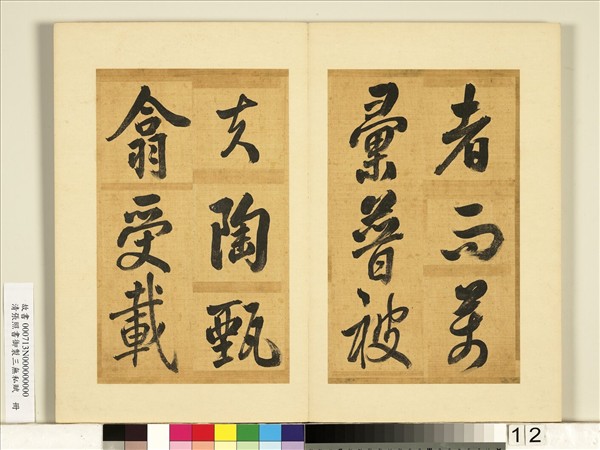 者而萬
彙普被
夫陶甄
翕受載
故書 000713N000000000
清張照書御製三無私賦 冊
12